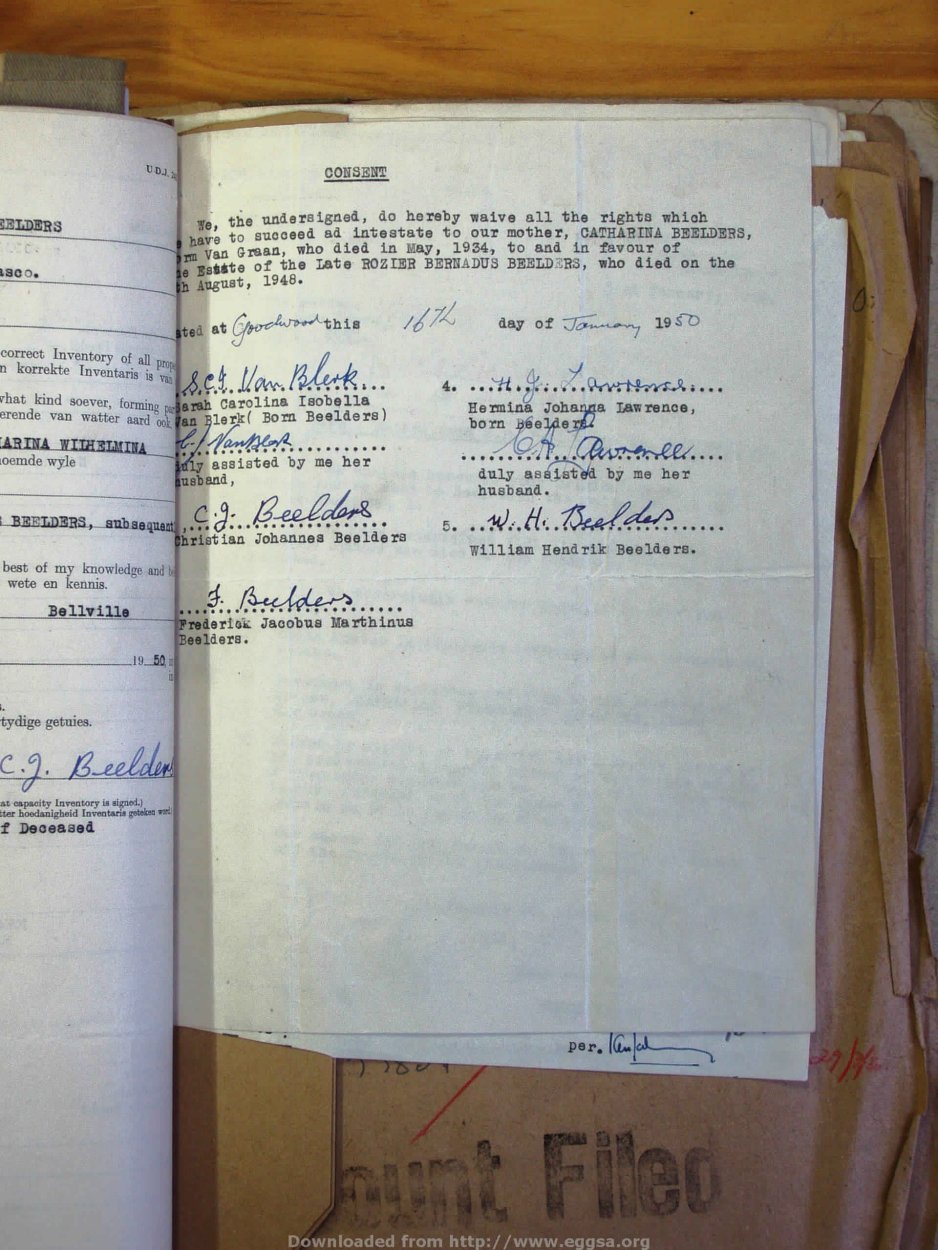 U.D.J.
EELDERS
asco.
correct Inventory of all prop
n korrekte Inventaris is van
what kind soever, forming par
erende van watter aard ook
ARINA WILHELMINA
oemde wyle
BEELDERS, subsequent
best of my knowledge and b
wete en kennis.
Bellville
19 50
tydige getuies.
C.J. Beelders
at capacity Inventory is signed.)
tter hoedanigheid Inventaris geteken word.
f Deceased
CONSENT
We, the undersigned, do hereby waive all the rights which
have to succeed ad intestate to our mother, CATHARINA BEELDERS,
rm Van Graan, who died in May, 1934, to and in favour of
e Estate of the Late ROZIER BERNADUS BEELDERS, who died on the
th August, 1948.
ated at Goodwood this 16th day of January 1950
S.C.I. Van Blerk
Sarah Carolina Isobella
Van Blerk( Born Beelders)
C.J. Van Blerk
duly assisted by me her
husband,
C.J. Beelders
Christian Johannes Beelders
F. Beelders
Frederick Jacobus Marthinus
Beelders.
4. H. J. Lawrence
Hermina Johanna Lawrence,
born Beelders.
Lawrence
duly assisted by me her
husband.
5. W. H. Beelders
William Hendrik Beelders.
per.
ount Filed
Downloaded from http://www.eggsa.org